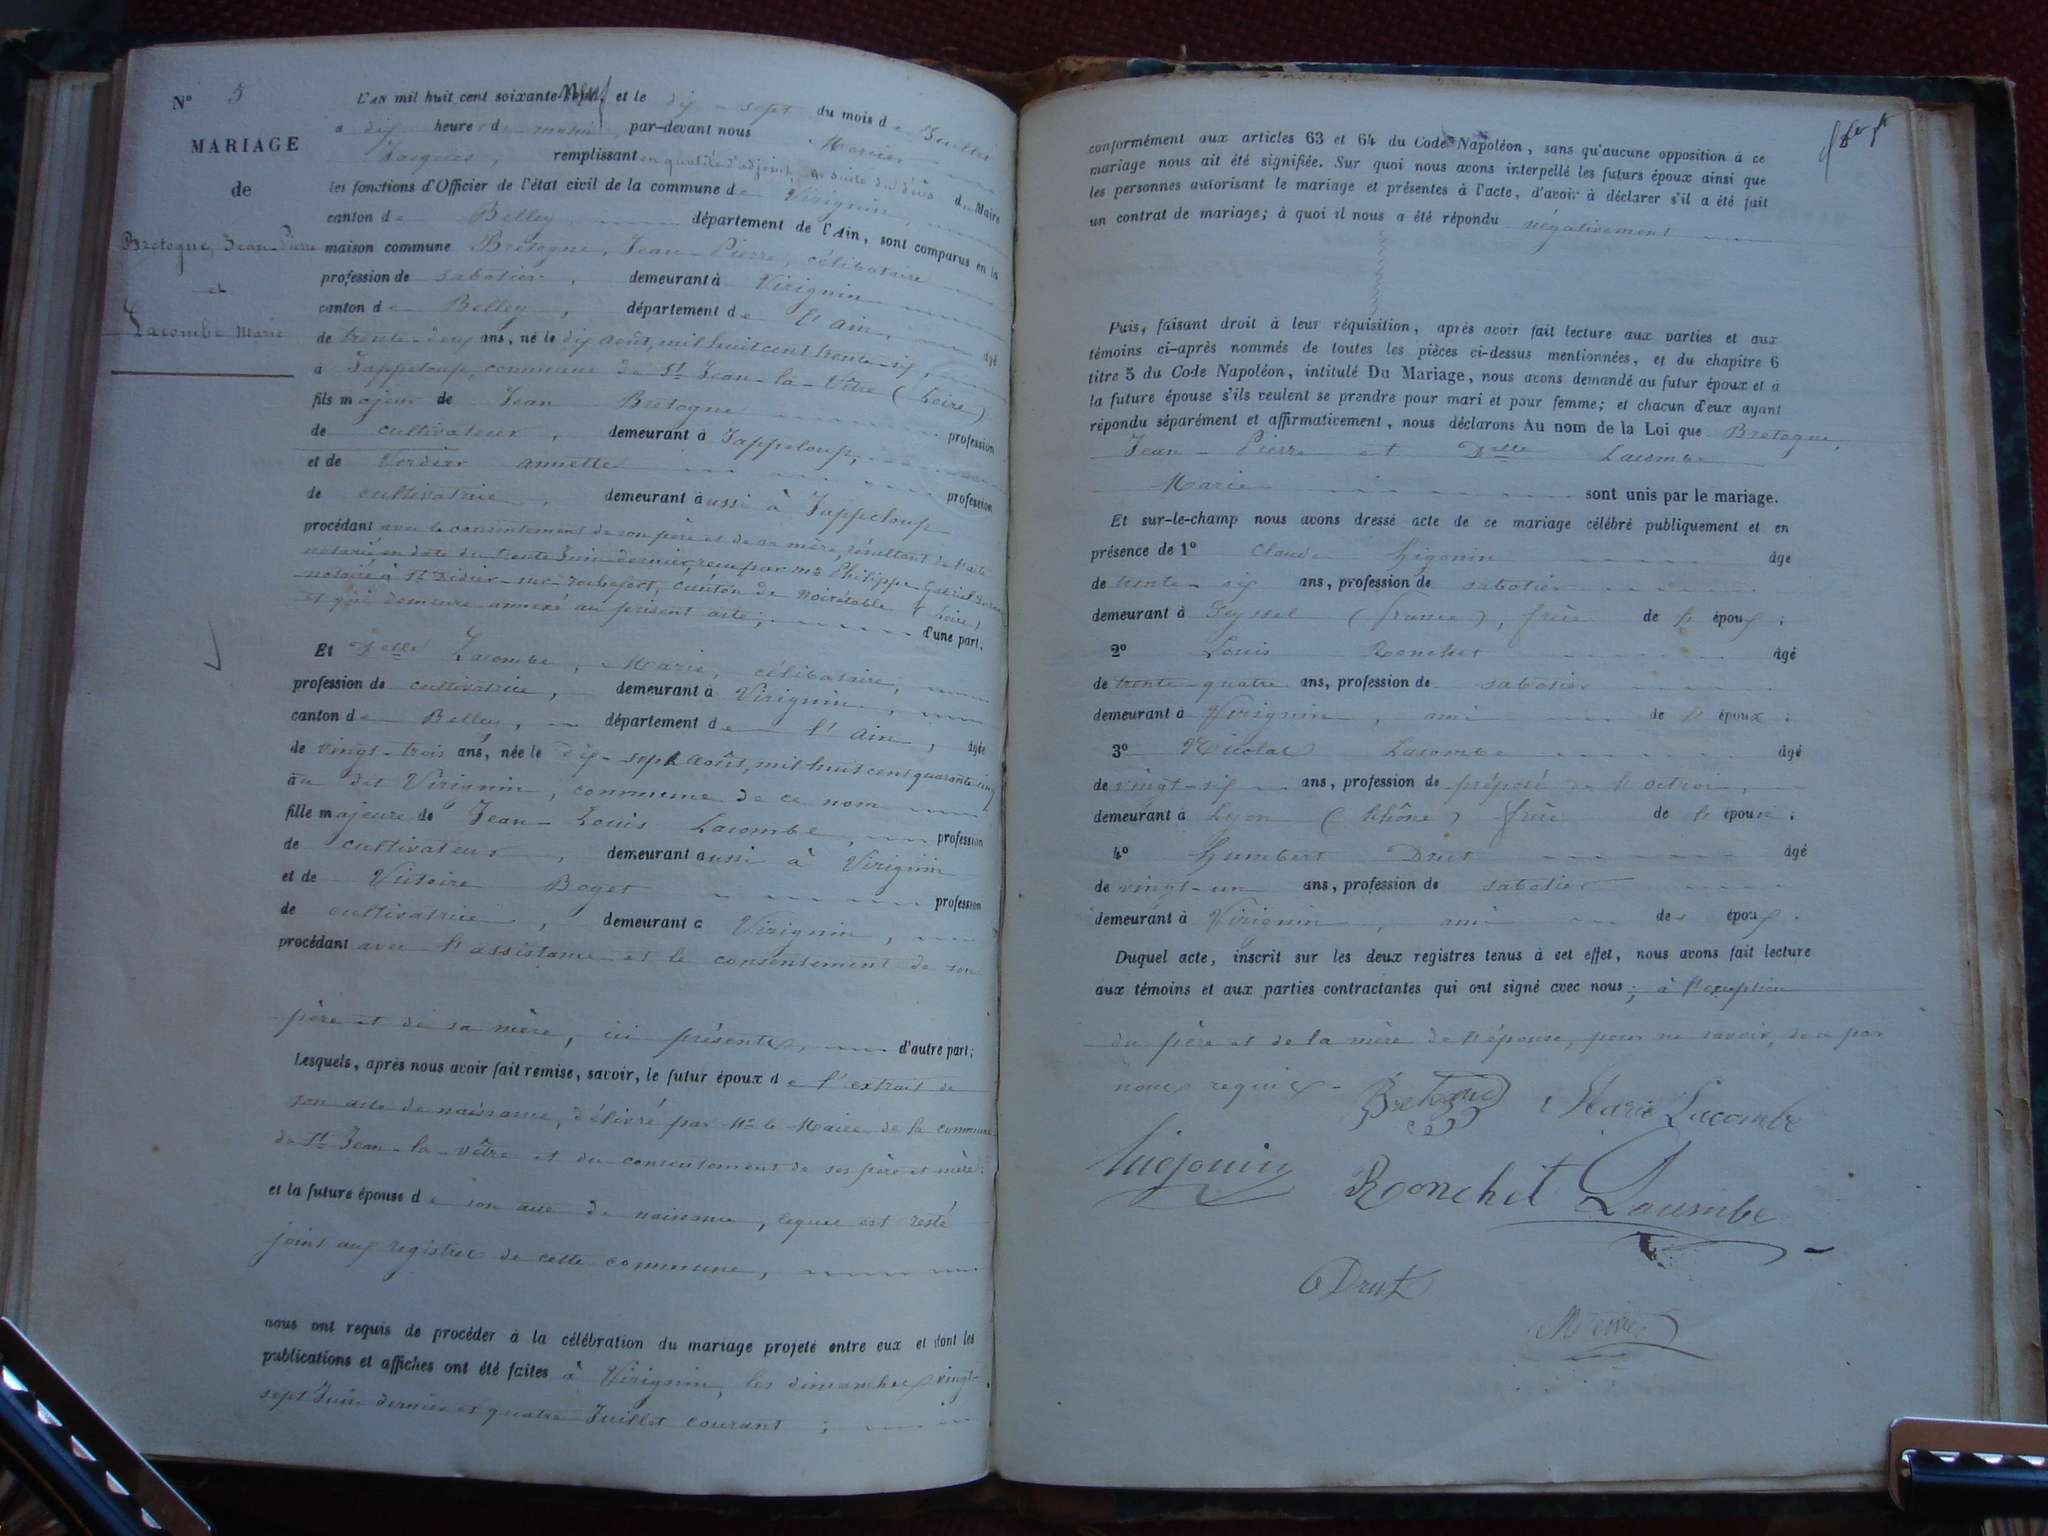 N° 5
MARIAGE
de
Bretogne, Jean-Pierre
et
Lacombe Marie
L'AN mil huit cent soixante-neuf et le dix-sept du mois de Juillet
à dix heures du matin, par-devant nous Mercier
Jacques, remplissant en qualité d'adjoint, du Maire
les fonctions d'Officier de l'état civil de la commune de Virignin,
canton de Belley département de l'Ain, sont comparus en la
maison commune Bretogne, Jean-Pierre, célibataire
profession de sabotier, demeurant à Virignin
canton de Belley, département de l'Ain, âgé
de trente-deux ans, né le dix août, mil huit cent trente-six,
à Jappeloup, commune de St Jean-la-Vêtre (Loire)
fils majeur de Jean Bretogne profession
de cultivateur, demeurant à Jappeloup,
et de Verdier annette profession
de cultivatrice, demeurant aussi à Jappeloup
procédant avec le consentement de son père et de sa mère, résultant de l'acte
notarié, en date du trente Juin dernier, reçu par Me Philippe Gabriel
notaire à St Didier-sur-rochefort, canton de Noirétable (Loire)
et qui demeure annexé au présent acte; d'une part.
Et Delle Lacombe, Marie, célibataire,
profession de cultivatrice, demeurant à Virignin,
canton de Belley, département de l'Ain, âgée
de vingt-trois ans, née le dix-sept août, mil huit cent quarante cinq
au dit Virignin, commune de ce nom
fille majeure de Jean-Louis Lacombe, profession
de cultivateur, demeurant aussi à Virignin
et de Victoire Boget profession
de cultivatrice, demeurant à Virignin,
procédant avec l'assistance et le consentement de son
père et de sa mère, ici présents, d'autre part;
Lesquels, après nous avoir fait remise, savoir, le futur époux de l'extrait de
son acte de naissance, délivré par Mr le Maire de la commune
de St Jean-la-vêtre et du consentement de ses père et mère
et la future épouse de son acte de naissance, lequel est resté
joint aux registres de cette commune,
nous ont requis de procéder à la célébration du mariage projeté entre eux et dont les
publications et affiches ont été faites à Virignin, les dimanches vingt-
sept Juin dernier et quatre Juillet courant;
conformément aux articles 63 et 64 du Code Napoléon, sans qu'aucune opposition à ce
mariage nous ait été signifiée. Sur quoi nous avons interpellé les futurs époux ainsi que
les personnes autorisant le mariage et présentes à l'acte, d'avoir à déclarer s'il a été fait
un contrat de mariage; à quoi il nous a été répondu négativement
Puis, faisant droit à leur réquisition, après avoir fait lecture aux parties et aux
témoins ci-après nommés de toutes les pièces ci-dessus mentionnées, et du chapitre 6
titre 5 du Code Napoléon, intitulé Du Mariage, nous avons demandé au futur époux et à
la future épouse s'ils veulent se prendre pour mari et pour femme; et chacun d'eux ayant
répondu séparément et affirmativement, nous déclarons Au nom de la Loi que Bretogne,
Jean-Pierre et Delle Lacombe
Marie sont unis par le mariage.
Et sur-le-champ nous avons dressé acte de ce mariage célébré publiquement et en
présence de 1° Claude Gigonin âgé
de trente-six ans, profession de sabotier
demeurant à Seyssel (france), frère de l'époux;
2° Louis Ronchet âgé
de trente-quatre ans, profession de sabotier
demeurant à Virignin, ami de l'époux;
3° Nicolas Lacombe âgé
de vingt-six ans, profession de préposé de l'octroi,
demeurant à Lyon (Rhône) frère de l'épouse;
4° Humbert Drut âgé
de vingt-un ans, profession de sabotier
demeurant à Virignin, ami des époux.
Duquel acte, inscrit sur les deux registres tenus à cet effet, nous avons fait lecture
aux témoins et aux parties contractantes qui ont signé avec nous; à l'exception
du père et de la mère de l'épouse, pour ne savoir, de ce par
nous requis-
Bretogne Marie Lacombe
Ronchet Lacombe
Drut
Mercier